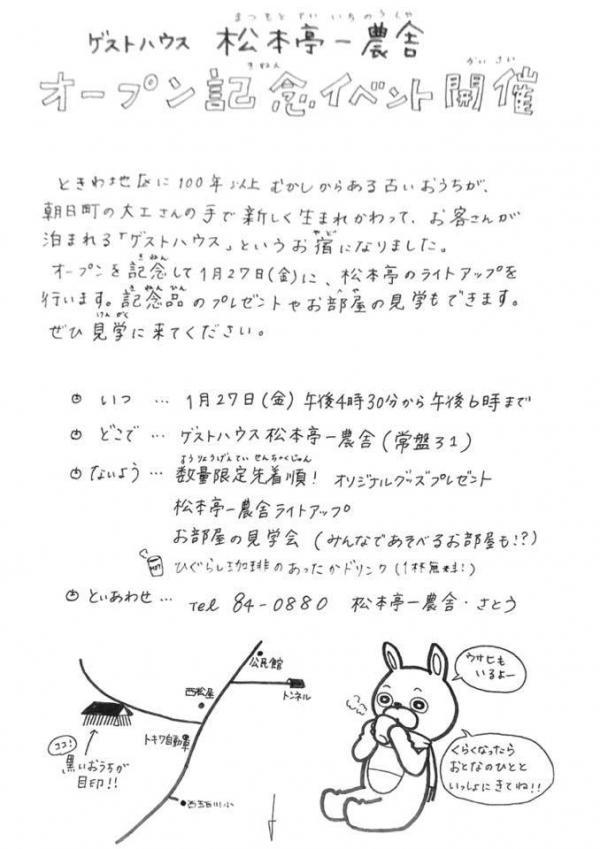 まつもとてい いちのうしゃ
ゲストハウス 松本亭一農舎
きねん かいさい
オープン記念イベント開催
ときわ地区に100年以上むかしからある古いおうちが、
朝日町の大工さんの手で新しく生まれかわって、お客さんが
やど
泊まれる「ゲストハウス」というお宿になりました。
きねん
オープンを記念して1月27日(金)に、松本亭のライトアップを
きねんひん へや
行います。記念品のプレゼントやお部屋の見学もできます。
けんがく
ぜひ見学に来てください。
いつ … 1月27日(金)午後4時30分から午後6時まで
どこで … ゲストハウス松本亭一農舎(常盤31)
すうりょうげんてい せんちゃくじゅん
ないよう … 数量限定先着順! オリジナルグッズプレゼント
松本亭一農舎ライトアップ
お部屋の見学会(みんなであそべるお部屋も!?)
HOT
ひぐらし珈琲のあったかドリンク(1杯無料!)
といあわせ … Tel 84-0880 松本亭一農舎・さとう
公民館
トンネル
西松屋
トキワ自動車
ココ!
黒いおうちが
目印!!
西五百川小
ウサヒも
いるよー
くらくなったら
おとなのひとと
いっしょにきてね!!